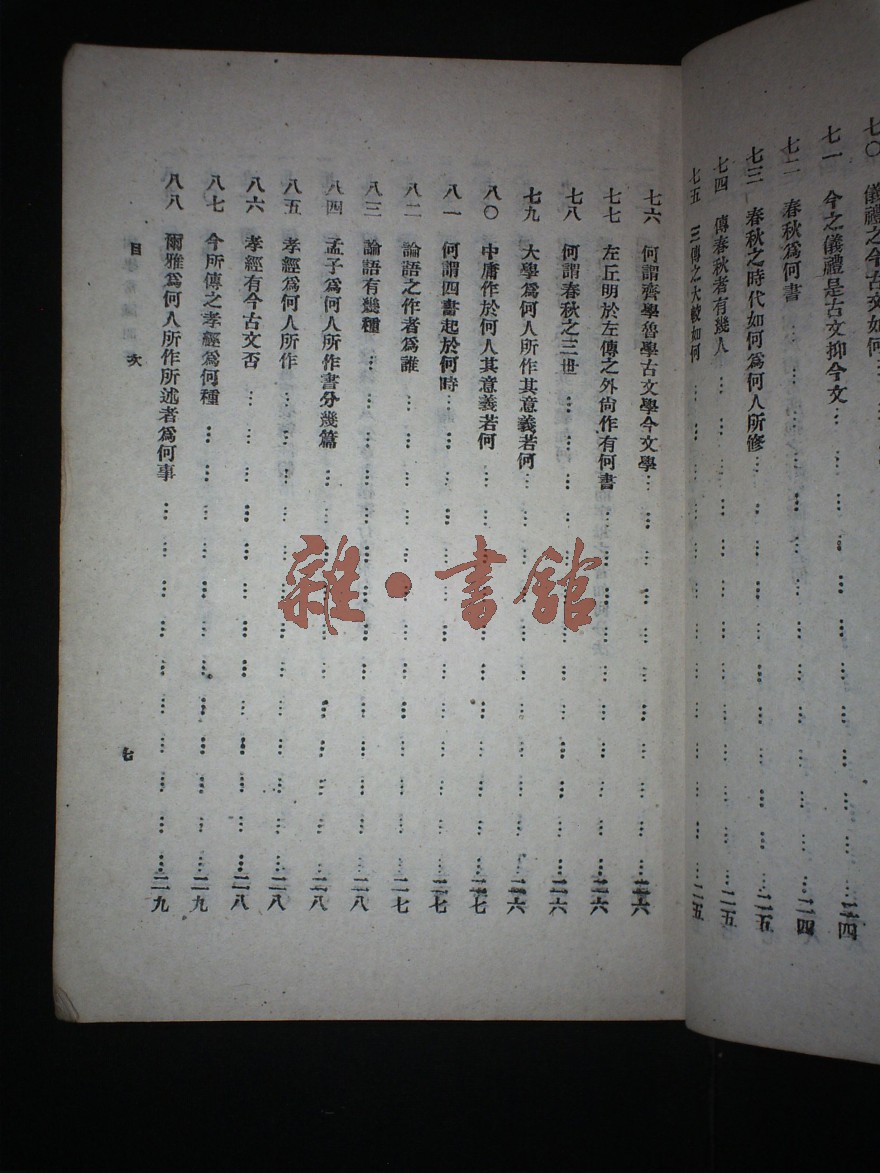 七〇 儀禮之今古文如何
七一 今之儀禮是古文抑今文…………二四
七二 春秋爲何書…………二四
七三 春秋之時代如何爲何人所修…………二五
七四 傳春秋者有幾人…………二五
七五 三傳之大較如何…………二五
七六 何謂齊學魯學古文學今文學…………二六
七七 左丘明於左傳之外尙作有何書…………二六
七八 何謂春秋之三世…………二六
七九 大學爲何人所作其意義若何…………二六
八〇 中庸作於何人其意義若何…………二七
八一 何謂四書起於何時…………二七
八二 論語之作者爲誰…………二七
八三 論語有幾種…………二八
八四 孟子爲何人所作書分幾篇…………二八
八五 孝經爲何人所作…………二八
八六 孝經有今古文否…………二八
八七 今所傳之孝經爲何種…………二九
八八 爾雅爲何人所作所述者爲何事…………二九
目次
七
雜·書館